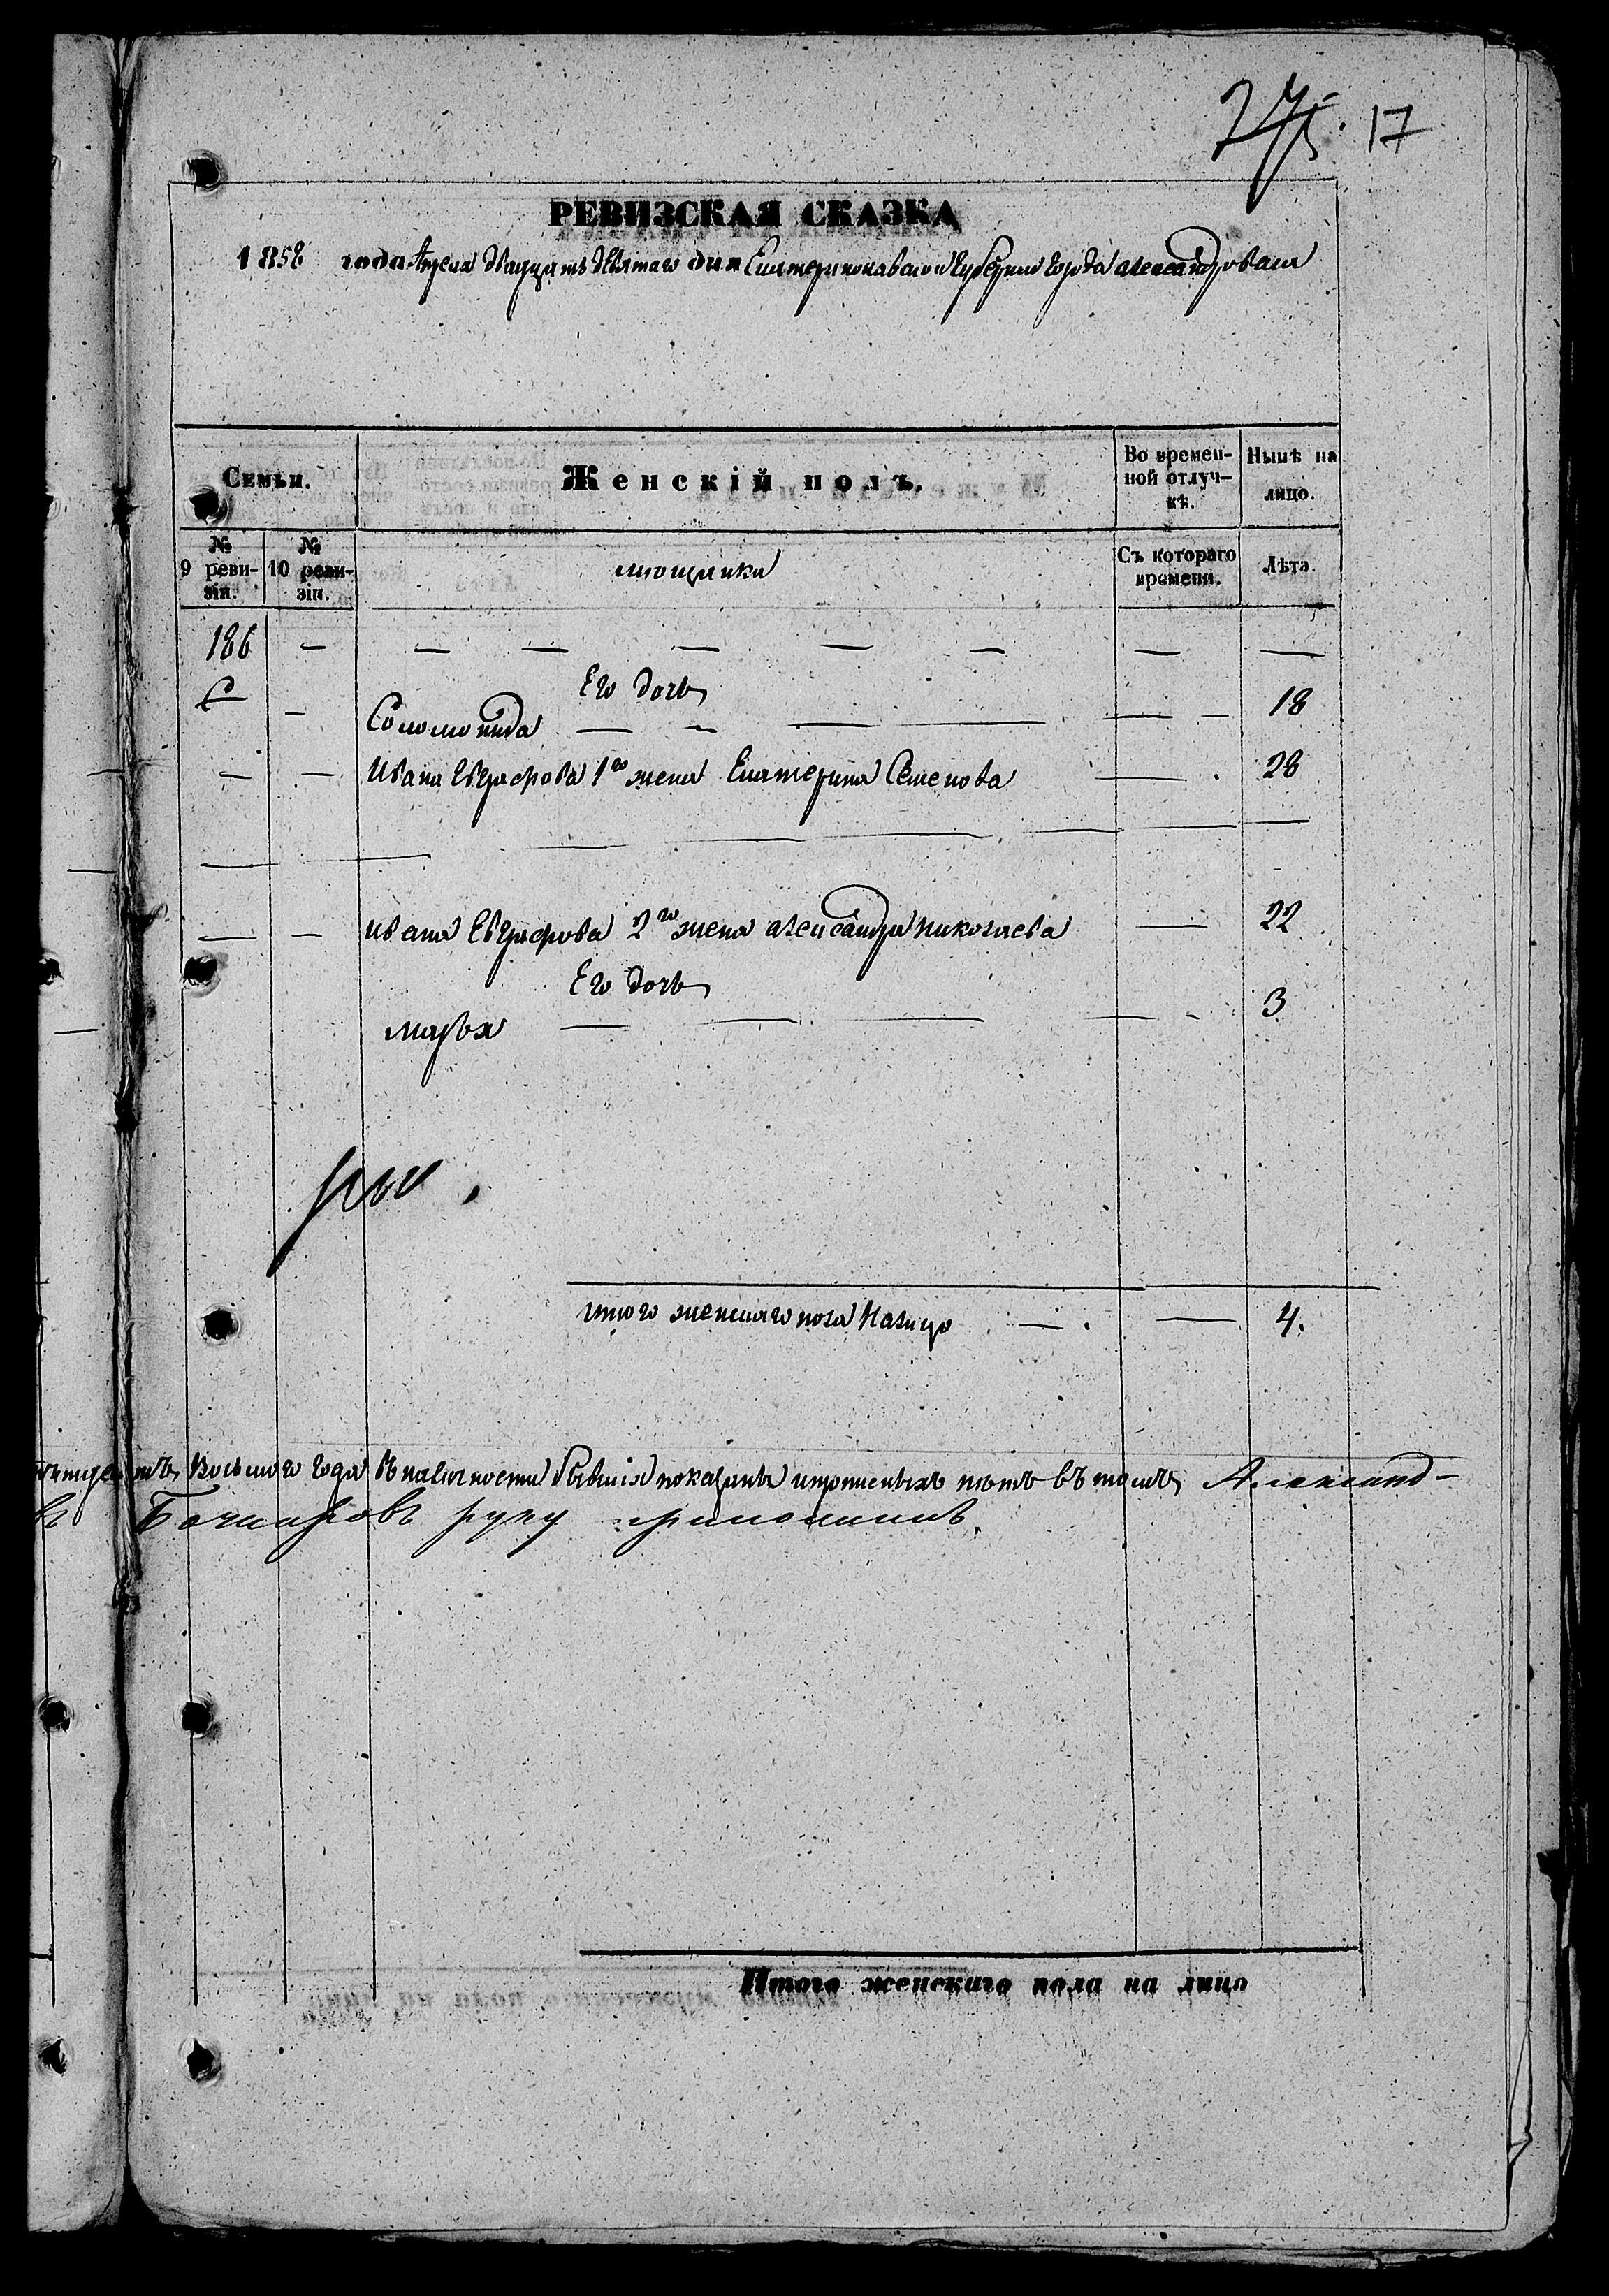 17
РЕВИЗСКАЯ СКАЗКА
1858 года Апреля двадцать девятаго дня Екатеринославской Губернии города Александровска
Семьи. Женскій полъ. Во времен-ной отлуч-кѣ. Нынѣ на лицо.
№ 9 реви-зіи. № 10 реви-зіи. мещанки Съ котораго времени. Лѣта.
186 — — — — — — — —
Его дочь
— Соломонида — — — — — — 18
— — Ивана Евграфова 1го жена Екатерина Семенова — 28
— — Ивана Евграфова 2го жена Александра Николаева — 22
Его дочь
Марья — — — — - 3
итого женскаго пола налицо — — 4.
восьмаго года въ наличности бывшія показаны и прописныхъ нѣтъ въ томъ Александ-
Бочкаровъ руку приложилъ.
Итого женскаго пола на лицо